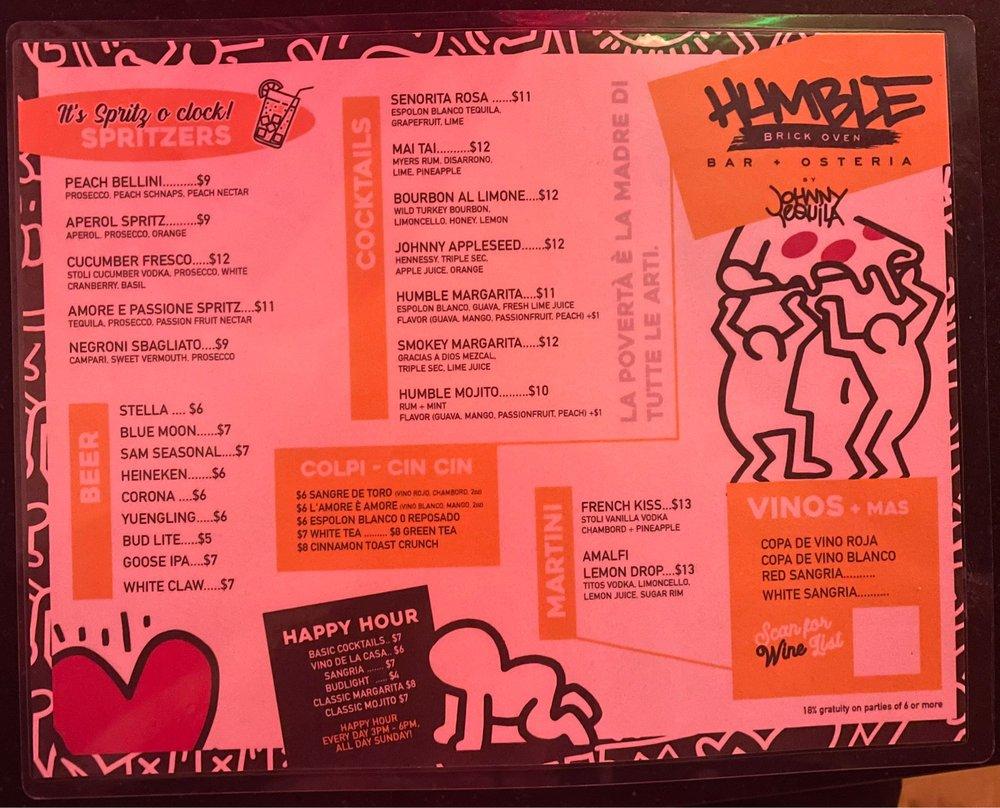 It's Spritz o clock!
SPRITZERS
PEACH BELLINI..........$9
PROSECCO, PEACH SCHNAPS, PEACH NECTAR
APEROL SPRITZ........$9
APEROL, PROSECCO, ORANGE
CUCUMBER FRESCO.....$12
STOLI CUCUMBER VODKA, PROSECCO, WHITE
CRANBERRY, BASIL
AMORE E PASSIONE SPRITZ....$11
TEQUILA, PROSECCO, PASSION FRUIT NECTAR
NEGRONI SBAGLIATO....$9
CAMPARI, SWEET VERMOUTH, PROSECCO
BEER
STELLA .... $6
BLUE MOON......$7
SAM SEASONAL....$7
HEINEKEN.....$6
CORONA ....$6
YUENGLING.....$6
BUD LITE.....$5
GOOSE IPA....$7
WHITE CLAW.....$7
COCKTAILS
SENORITA ROSA ......$11
ESPOLON BLANCO TEQUILA,
GRAPEFRUIT, LIME
MAI TAI..........$12
MYERS RUM, DISARRONO,
LIME, PINEAPPLE
BOURBON AL LIMONE....$12
WILD TURKEY BOURBON,
LIMONCELLO, HONEY, LEMON
JOHNNY APPLESEED.......$12
HENNESSY, TRIPLE SEC,
APPLE JUICE, ORANGE
HUMBLE MARGARITA....$11
ESPOLON BLANCO, GUAVA, FRESH LIME JUICE
FLAVOR (GUAVA, MANGO, PASSIONFRUIT, PEACH) +$1
SMOKEY MARGARITA.....$12
GRACIAS A DIOS MEZCAL,
TRIPLE SEC, LIME JUICE
HUMBLE MOJITO.........$10
RUM + MINT
FLAVOR (GUAVA, MANGO, PASSIONFRUIT, PEACH) +$1
LA POVERTÀ È LA MADRE DI
TUTTE LE ARTI.
HUMBLE
BRICK OVEN
BAR + OSTERIA
BY
JOHNNY
TEQUILA
COLPI - CIN CIN
$6 SANGRE DE TORO (VINO ROJO, CHAMBORD, 2oz)
$6 L'AMORE È AMORE (VINO BLANCO, MANGO, 2oz)
$6 ESPOLON BLANCO O REPOSADO
$7 WHITE TEA ......... $8 GREEN TEA
$8 CINNAMON TOAST CRUNCH
MARTINI
FRENCH KISS...$13
STOLI VANILLA VODKA
CHAMBORD + PINEAPPLE
AMALFI
LEMON DROP....$13
TITOS VODKA, LIMONCELLO,
LEMON JUICE, SUGAR RIM
VINOS + MAS
COPA DE VINO ROJA
COPA DE VINO BLANCO
RED SANGRIA..........
WHITE SANGRIA..........
Scan for
Wine List
HAPPY HOUR
BASIC COCKTAILS.. $7
VINO DE LA CASA.. $6
SANGRIA ....... $7
BUDLIGHT ..... $4
CLASSIC MARGARITA $8
CLASSIC MOJITO $7
HAPPY HOUR
EVERY DAY 3PM - 6PM,
ALL DAY SUNDAY!
18% gratuity on parties of 6 or more